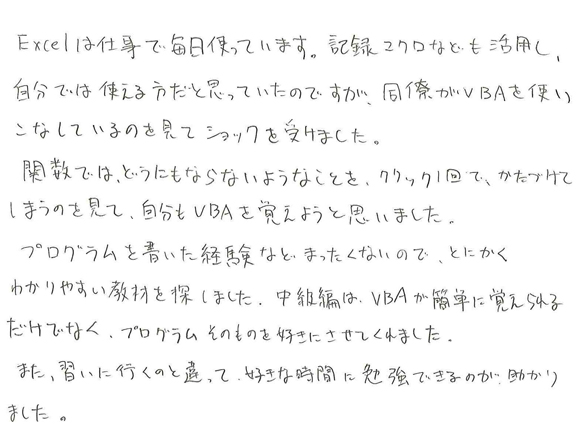 Excelは仕事で毎日使っています。記録マクロなども活用し、
自分では使える方だと思っていたのですが、同僚がVBAを使い
こなしているのを見てショックを受けました。
関数では、どうにもならないようなことを、クリック1回で、かたづけて
しまうのを見て、自分もVBAを覚えようと思いました。
プログラムを書いた経験などまったくないので、とにかく
わかりやすい教材を探しました。中級編は、VBAが簡単に覚えられる
だけでなく、プログラムそのものを好きにさせてくれました。
また、習いに行くのと違って、好きな時間に勉強できるのが、助かり
ました。